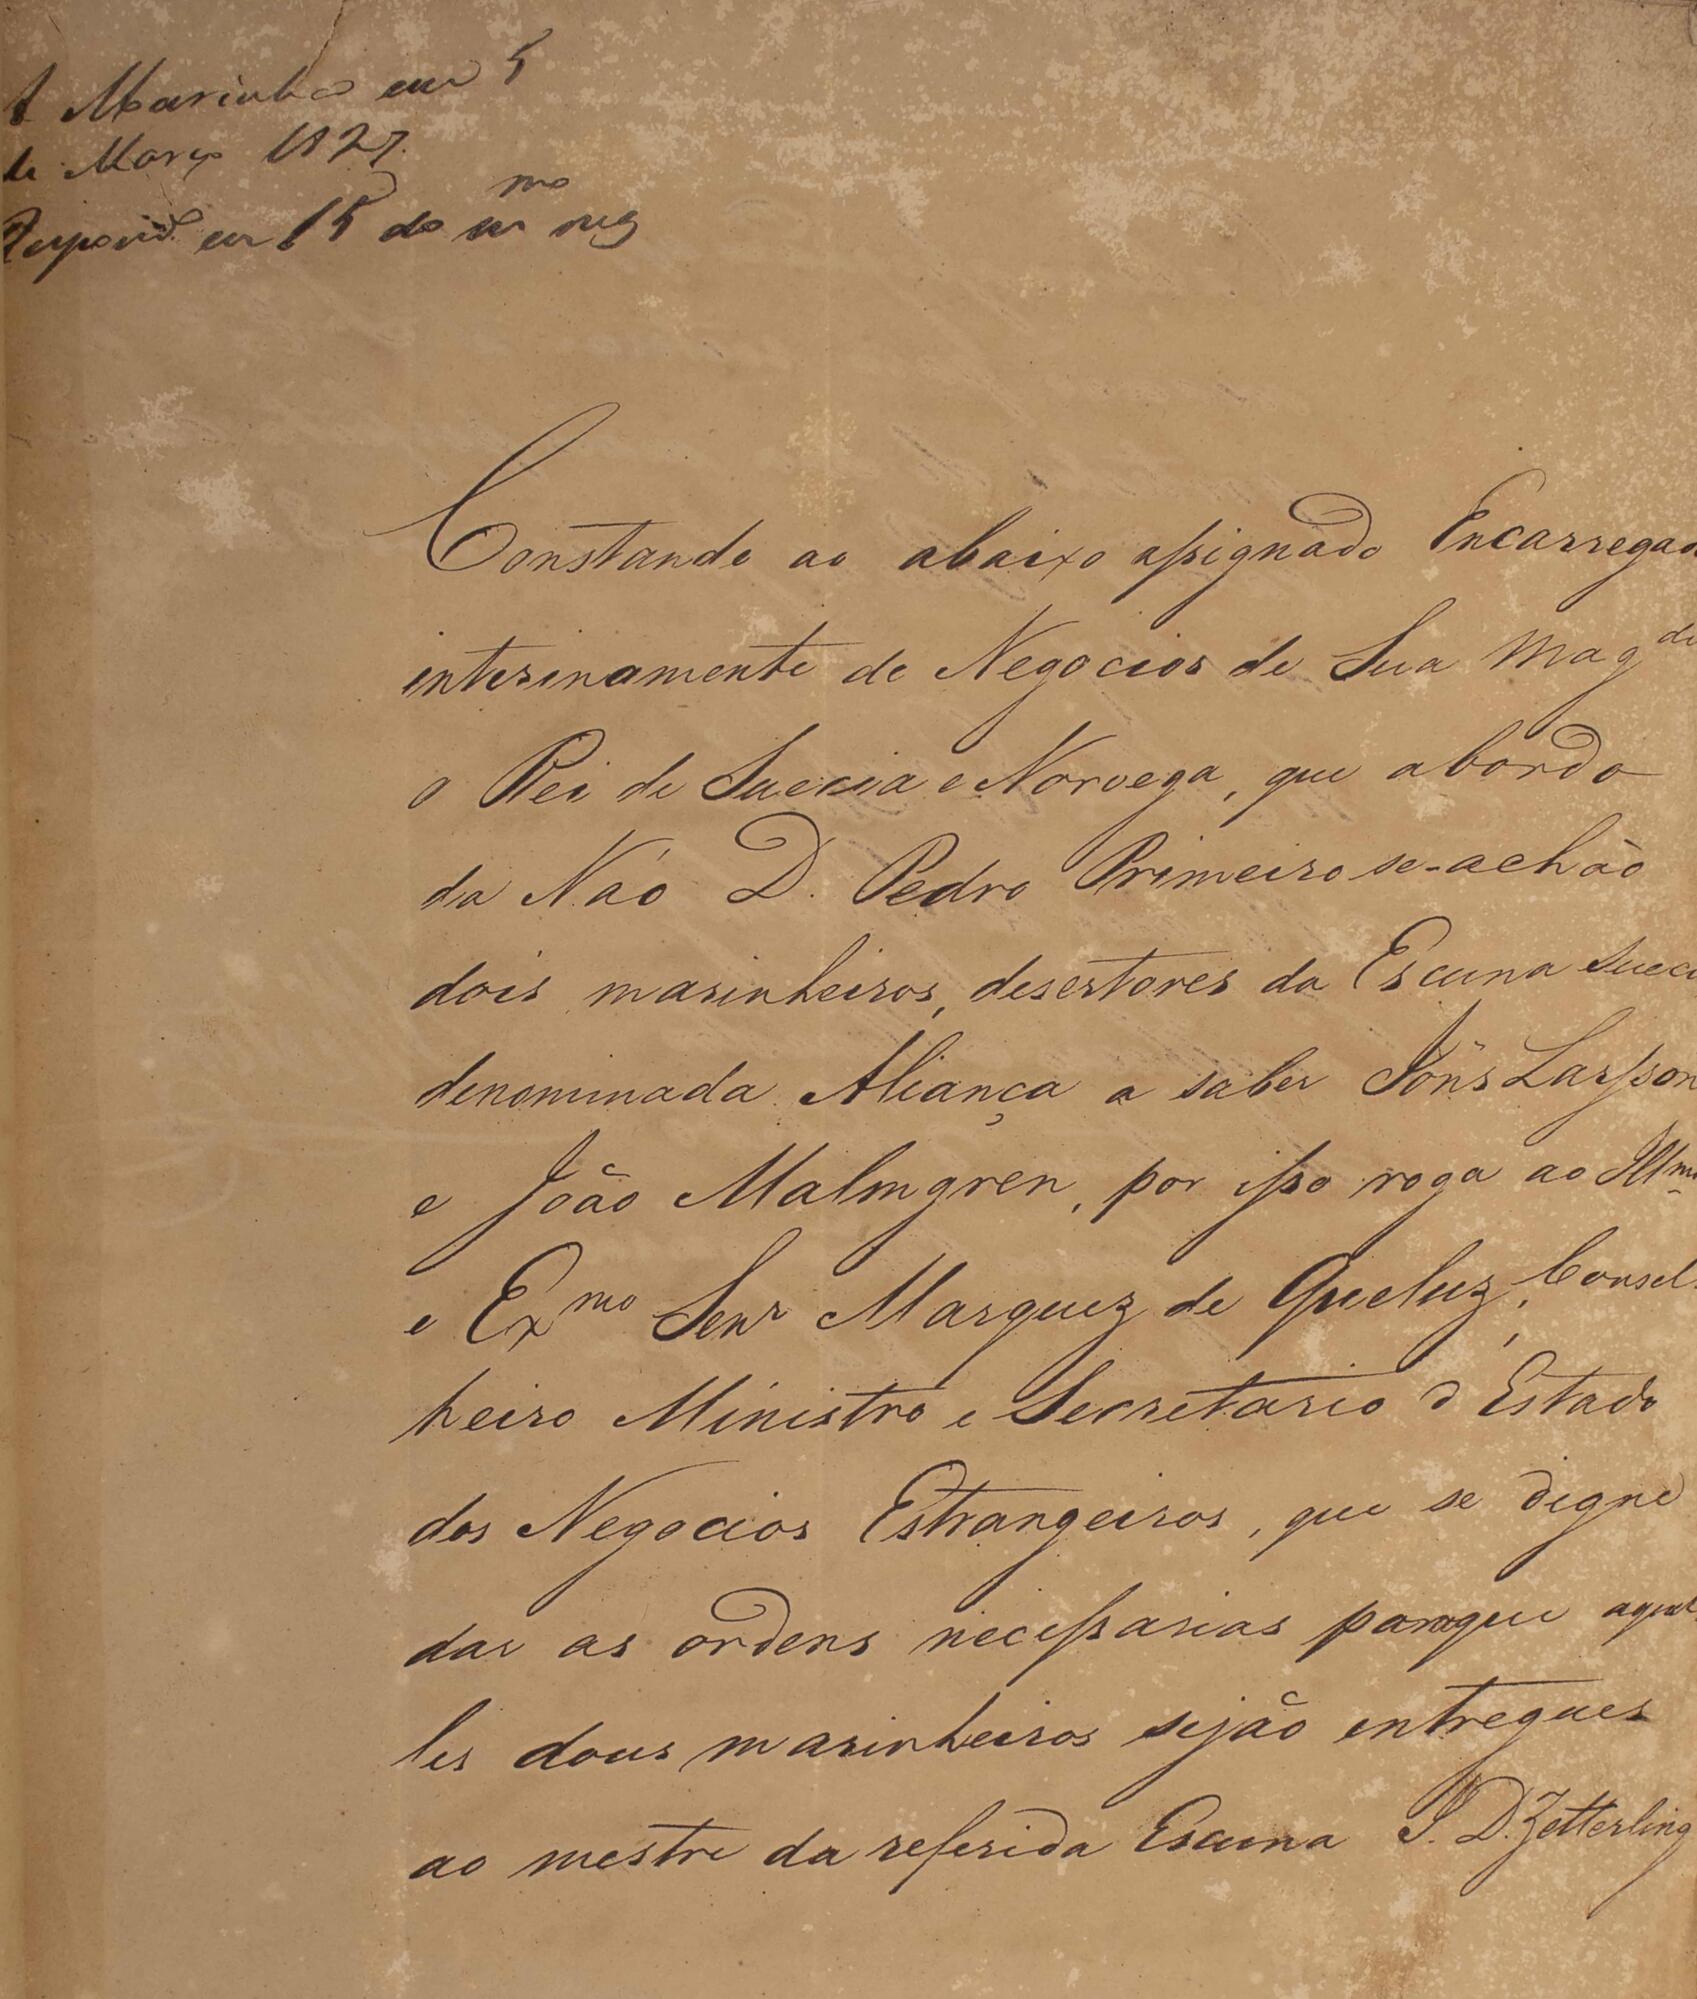 A Marinha em 5
de Março 1827.
Respond. em 15 do mmo mez
Constando ao abaixo assignado Encarregado
interinamente de Negocios de Sua Magde
o Rei de Suecia e Norvega, que abordo
da Náo D. Pedro Primeiro se-achão
dois marinheiros, desertores da Escuna sueca
denominada Aliança a saber Jöns Larsson
e João Malmgren, por isso roga ao Illmo
e Exmo Senr Marquez de Queluz, Consel-
heiro Ministro e Secretario d'Estado
dos Negocios Estrangeiros, que se digne
dar as ordens necessarias paraque aquel-
les dous marinheiros sejão entregues
ao mestre da referida Escuna J. D. Zetterling